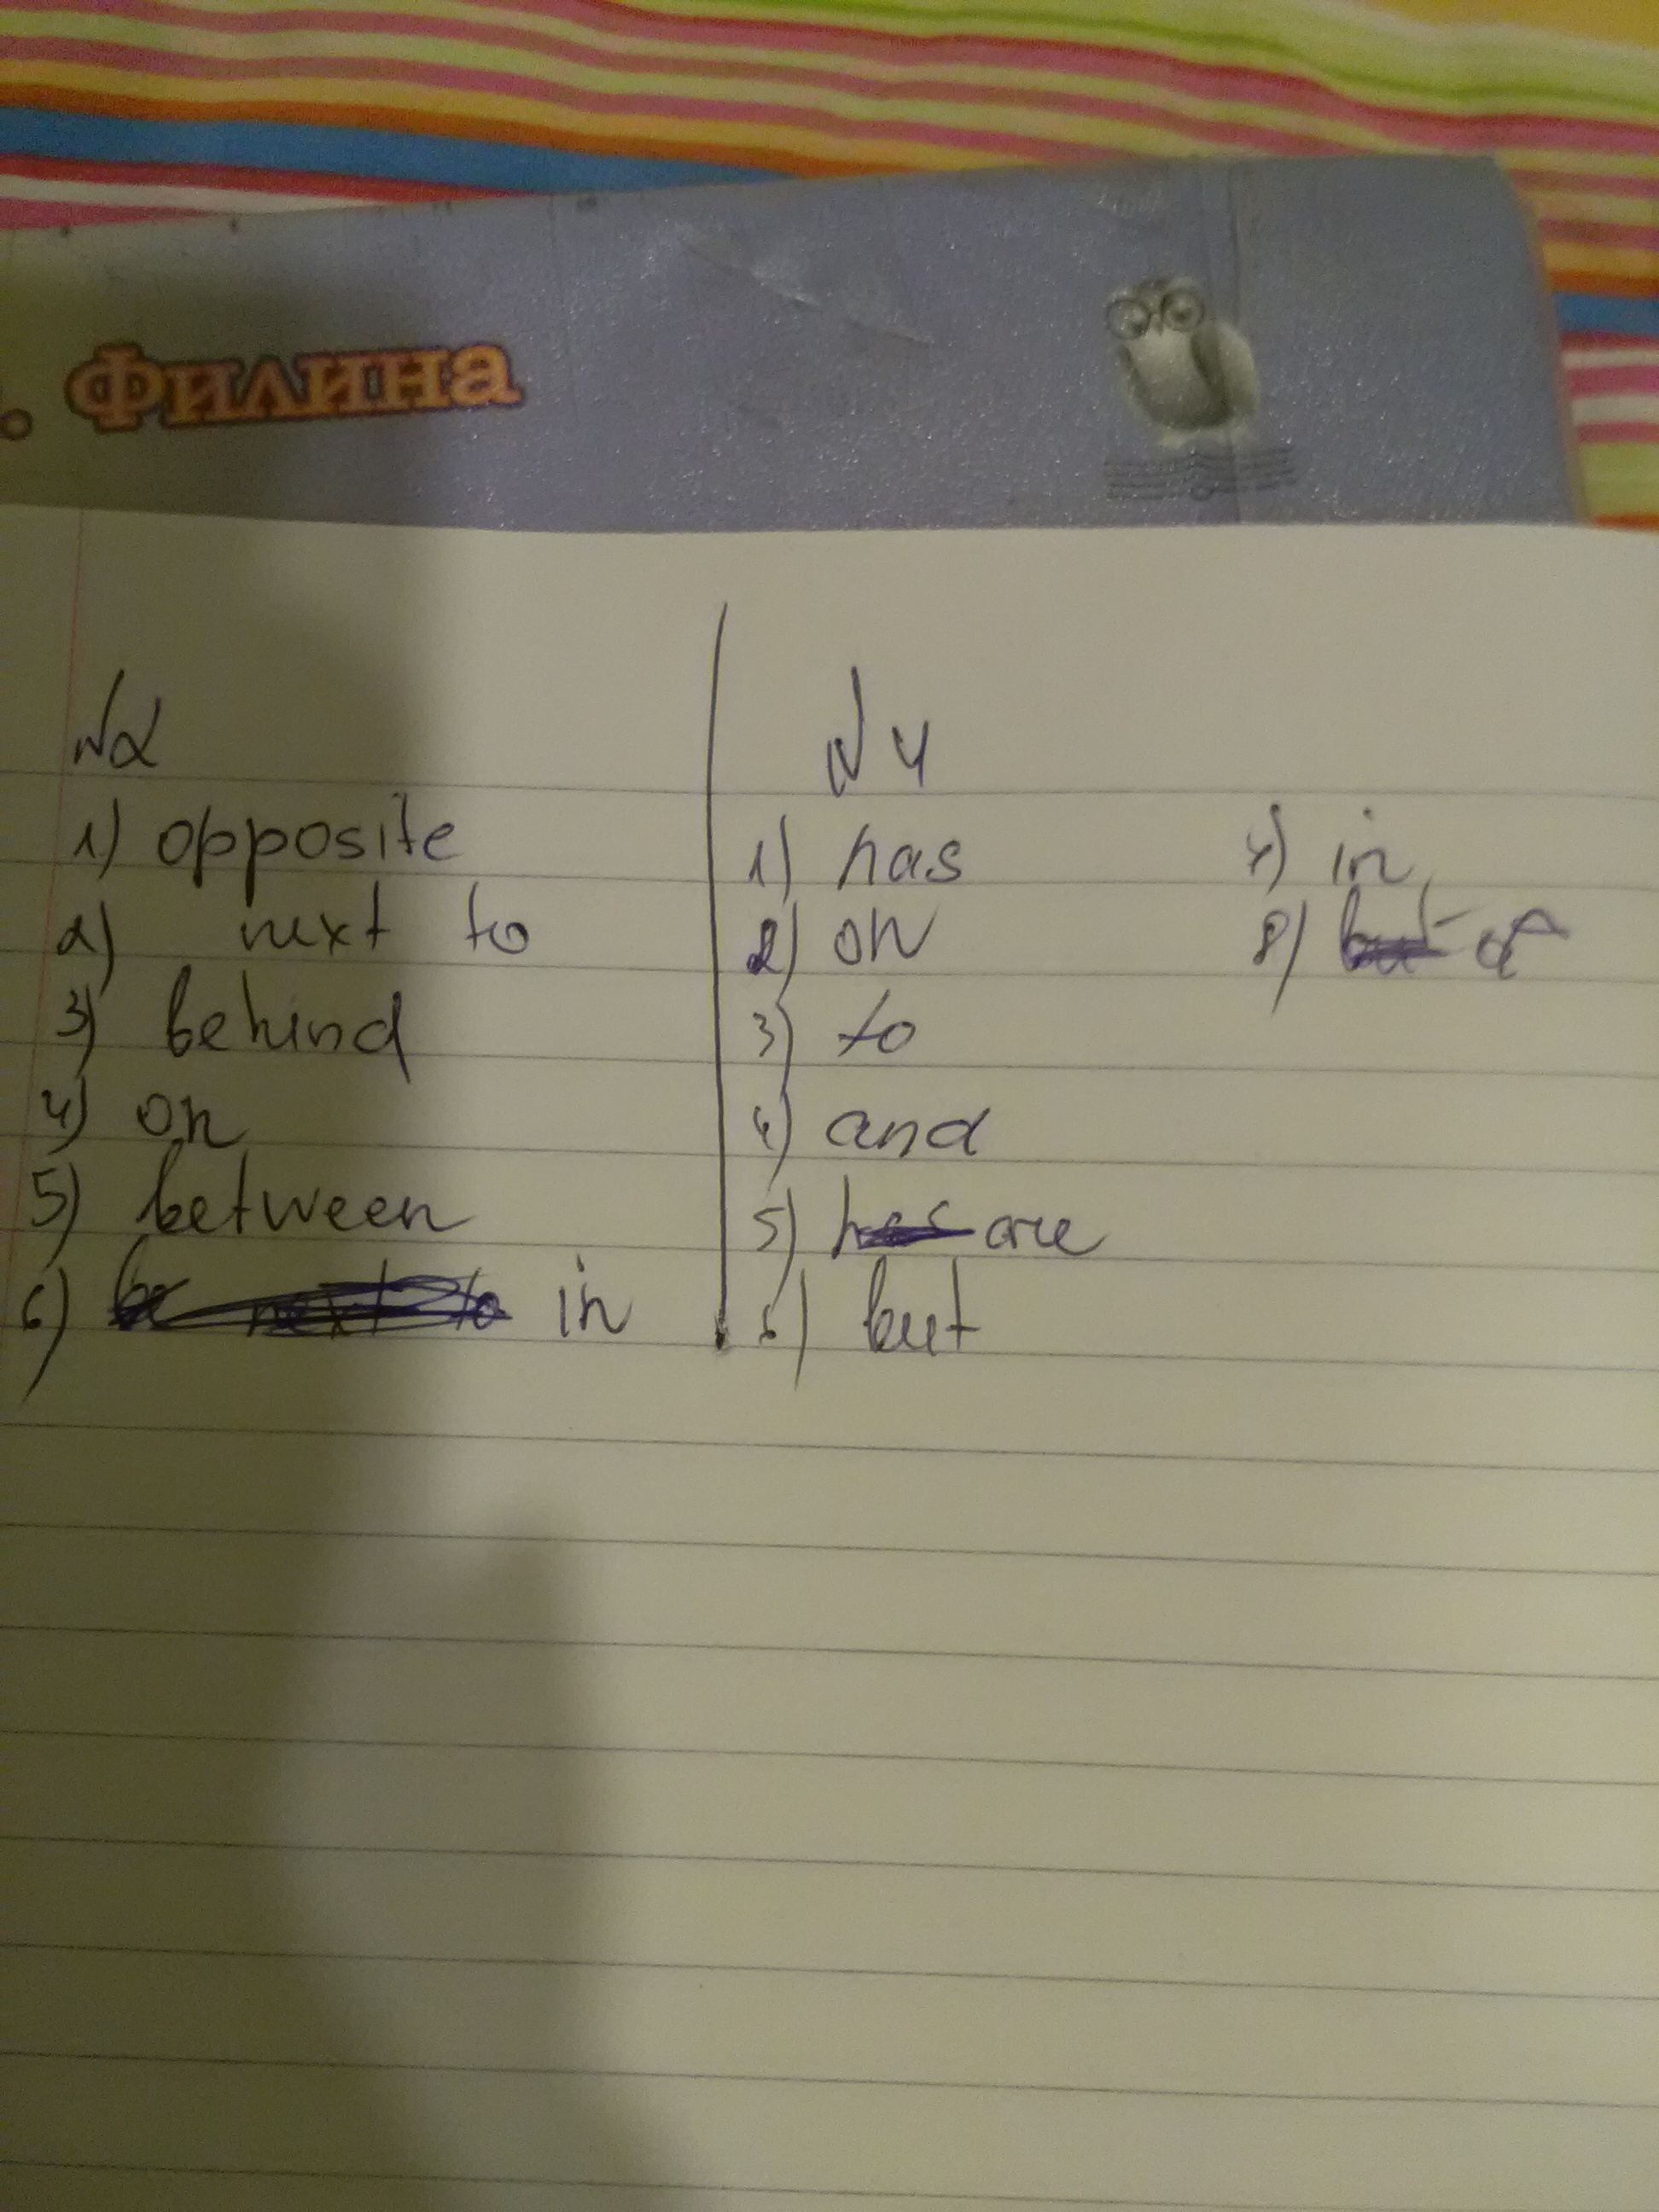 . Филина
№2
1) opposite
2) next to
3) behind
4) on
5) between
6) be next to in
№4
1) has
2) on
3) to
4) and
5) has are
6) but
7) in
8) but of